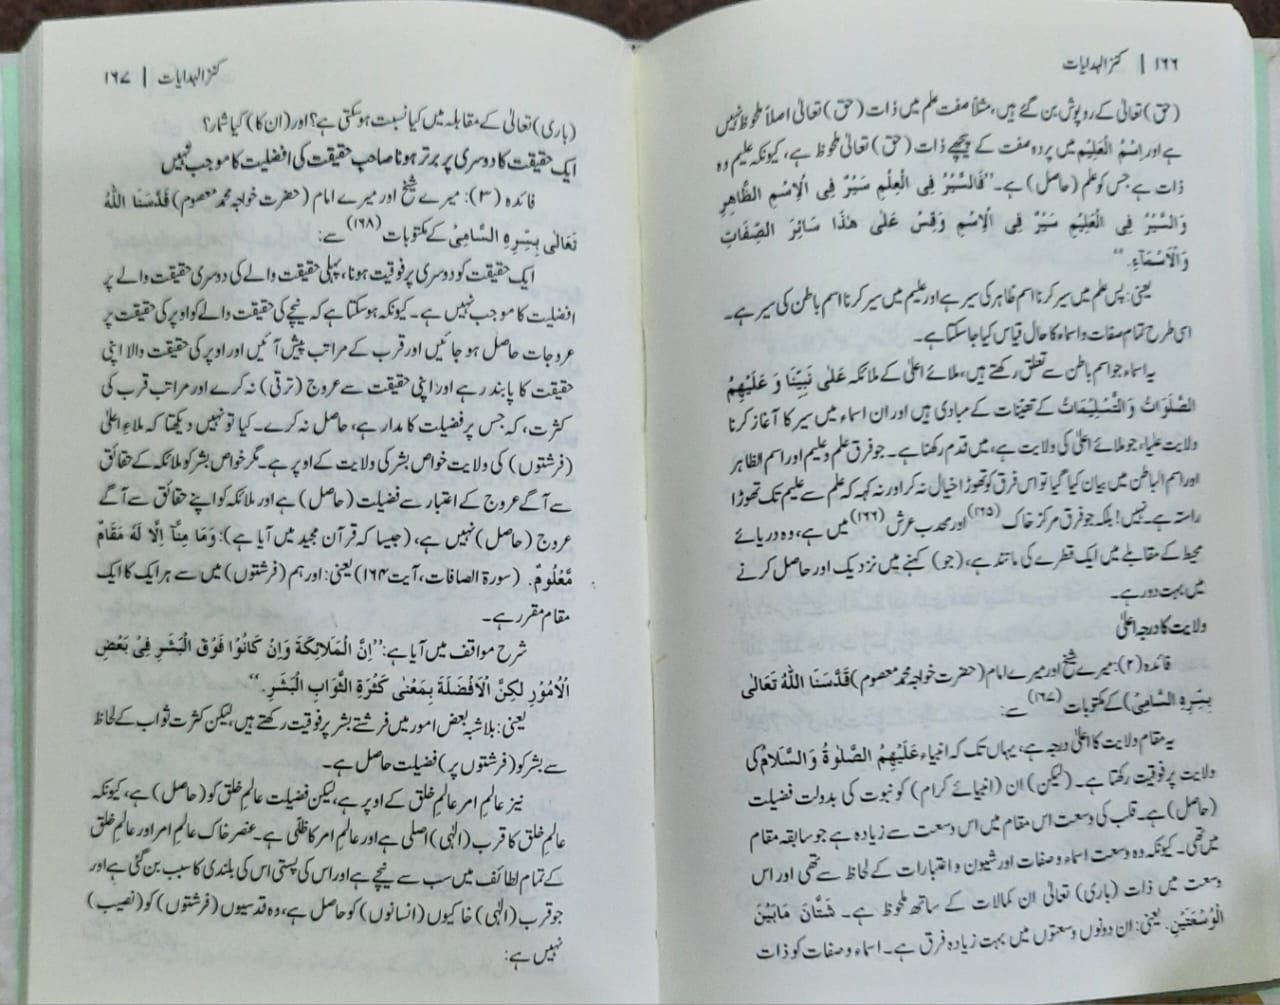 ۱۶۶ | کنز الہدایات
(حق) تعالیٰ کے روپوش بن گئے ہیں، مثلاً صفت علم میں ذات (حق) تعالیٰ اصلاً ملحوظ نہیں
ہے اور اِسْمُ الْعَلِیْم میں پردہ صفت کے پیچھے ذات (حق) تعالیٰ ملحوظ ہے، کیونکہ علیم وہ
ذات ہے جس کو علم (حاصل) ہے۔ ”فَالسَّیْرُ فِی الْعِلْمِ سَیْرٌ فِی الْاِسْمِ الظَّاهِرِ
وَالسَّیْرُ فِی الْعَلِیْمِ سَیْرٌ فِی الْاِسْمِ وَقِسْ عَلٰی هٰذَا سَائِرَ الصِّفَاتِ
وَالْاَسْمَآءِ۔“
یعنی: پس علم میں سیر کرنا اسم ظاہر کی سیر ہے اور علیم میں سیر کرنا اسم باطن کی سیر ہے۔
اسی طرح تمام صفات و اسماء کا حال قیاس کیا جا سکتا ہے۔
یہ اسماء جو اسم باطن سے تعلق رکھتے ہیں، ملائے اعلیٰ کے ملائکہ عَلٰی نَبِیِّنَا وَ عَلَیْهِمُ
الصَّلَوَاتُ وَالتَّسْلِیْمَاتُ کے تعینات کے مبادی ہیں اور ان اسماء میں سیر کا آغاز کرنا
ولایت علیاء جو ملائے اعلیٰ کی ولایت ہے، میں قدم رکھنا ہے۔ جو فرق علم و علیم اور اسم الظاہر
اور اسم الباطن میں بیان کیا گیا تو اس فرق کو تھوڑا خیال نہ کر اور نہ کہہ کہ علم سے علیم تک تھوڑا
راستہ ہے نہیں! بلکہ جو فرق مرکز خاک (۱۶۵) اور محدب عرش (۱۶۶) میں ہے، وہ دریائے
محیط کے مقابلے میں ایک قطرے کی مانند ہے، (جو) کہنے میں نزدیک اور حاصل کرنے
میں بہت دور ہے۔
ولایت کا درجہ اعلیٰ
فائدہ (۲): میرے شیخ اور میرے امام (حضرت خواجہ محمد معصوم) قَدَّسَنَا اللّٰهُ تَعَالٰی
بِسِرِّهِ السَّامِیْ) کے مکتوبات (۱۶۷) سے:
یہ مقام ولایت کا اعلیٰ درجہ ہے، یہاں تک کہ انبیاء عَلَیْهِمُ الصَّلٰوةُ وَالسَّلَامُ کی
ولایت پر فوقیت رکھتا ہے۔ (لیکن) ان (انبیائے کرام) کو نبوت کی بدولت فضیلت
(حاصل) ہے۔ قلب کی وسعت اس مقام میں اس وسعت سے زیادہ ہے جو سابقہ مقام
میں تھی۔ کیونکہ وہ وسعت اسماء و صفات اور شیون و اعتبارات کے لحاظ سے تھی اور اس
وسعت میں ذات (باری) تعالیٰ ان کمالات کے ساتھ ملحوظ ہے۔ شَتَّانَ مَابَیْنَ
الْوُسْعَتَیْنِ۔ یعنی: ان دونوں وسعتوں میں بہت زیادہ فرق ہے۔ اسماء و صفات کو ذات
کنز الہدایات | ۱۶۷
(باری) تعالیٰ کے مقابلہ میں کیا نسبت ہو سکتی ہے؟ اور (ان کا) کیا شمار؟
ایک حقیقت کا دوسری پر برتر ہونا صاحب حقیقت کی افضلیت کا موجب نہیں
فائدہ (۳): میرے شیخ اور میرے امام (حضرت خواجہ محمد معصوم) قَدَّسَنَا اللّٰهُ
تَعَالٰی بِسِرِّهِ السَّامِیْ کے مکتوبات (۱۶۸) سے:
ایک حقیقت کو دوسری پر فوقیت ہونا، پہلی حقیقت والے کی دوسری حقیقت والے پر
افضلیت کا موجب نہیں ہے۔ کیونکہ ہو سکتا ہے کہ نیچے کی حقیقت والے کو اوپر کی حقیقت پر
عروجات حاصل ہو جائیں اور قرب کے مراتب پیش آئیں اور اوپر کی حقیقت والا اپنی
حقیقت کا پابند رہے اور اپنی حقیقت سے عروج (ترقی) نہ کرے اور مراتب قرب کی
کثرت، کہ جس پر فضیلت کا مدار ہے، حاصل نہ کرے۔ کیا تو نہیں دیکھتا کہ ملاء اعلیٰ
(فرشتوں) کی ولایت خواص بشر کی ولایت کے اوپر ہے۔ مگر خواص بشر کو ملائکہ کے حقائق
سے آگے عروج کے اعتبار سے فضیلت (حاصل) ہے اور ملائکہ کو اپنے حقائق سے آگے
عروج (حاصل) نہیں ہے، (جیسا کہ قرآن مجید میں آیا ہے): وَمَا مِنَّآ اِلَّا لَهٗ مَقَامٌ
مَّعْلُوْمٌ۔ (سورۃ الصافات، آیت ۱۶۴) یعنی: اور ہم (فرشتوں) میں سے ہر ایک کا ایک
مقام مقرر ہے۔
شرح مواقف میں آیا ہے: ”اِنَّ الْمَلَائِکَةَ وَاِنْ کَانُوْا فَوْقَ الْبَشَرِ فِیْ بَعْضِ
الْاُمُوْرِ لٰکِنَّ الْاَفْضَلَةَ بِمَعْنٰی کَثْرَةِ الثَّوَابِ الْبَشَرِ۔“
یعنی: بلاشبہ بعض امور میں فرشتے بشر پر فوقیت رکھتے ہیں، لیکن کثرت ثواب کے لحاظ
سے بشر کو (فرشتوں پر) فضیلت حاصل ہے۔
نیز عالمِ امر عالمِ خلق کے اوپر ہے، لیکن فضیلت عالمِ خلق کو (حاصل) ہے، کیونکہ
عالمِ خلق کا قرب (الٰہی) اصلی ہے اور عالمِ امر کا ظلّی ہے۔ عنصر خاک عالمِ امر اور عالمِ خلق
کے تمام لطائف میں سب سے نیچے ہے اور اس کی پستی اس کی بلندی کا سبب بن گئی ہے اور
جو قرب (الٰہی) خاکیوں (انسانوں) کو حاصل ہے، وہ قدسیوں (فرشتوں) کو (نصیب)
نہیں ہے: